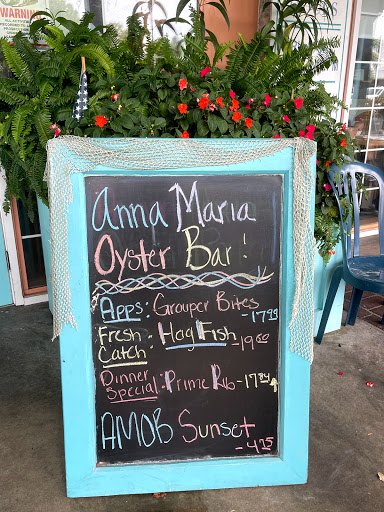 WARNING
Anna Maria
Oyster Bar!
Apps: Grouper Bites
-17.99
Fresh: Hog Fish
Catch -19.60
Dinner
Special: Prime Rib -17.84
AMOB Sunset
-4.75